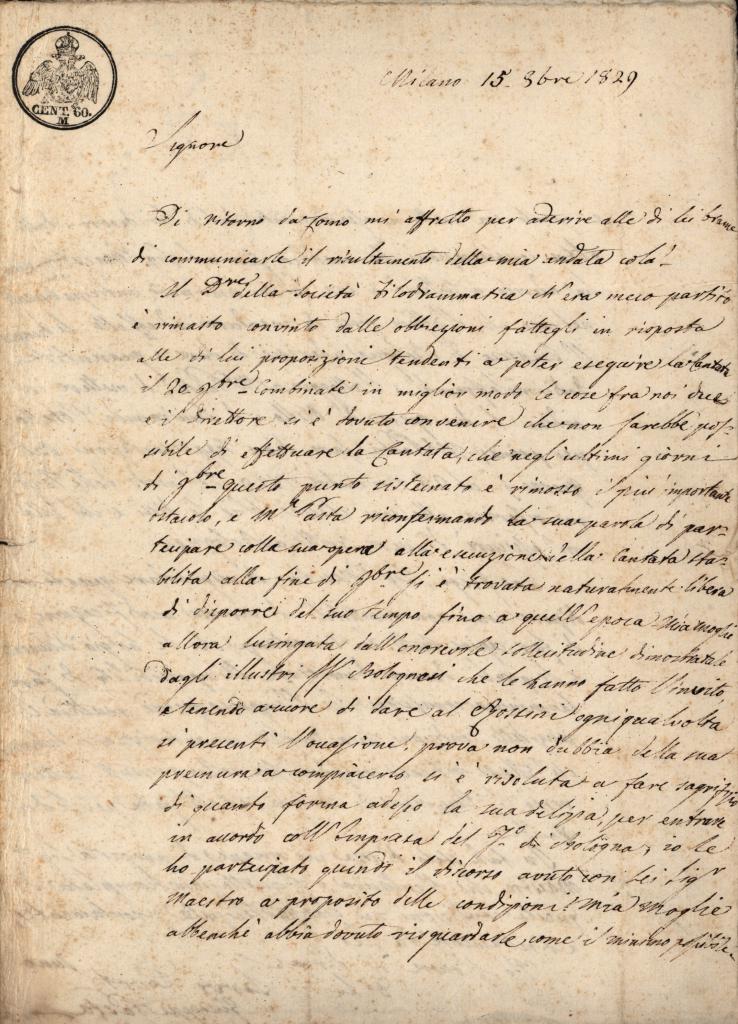 CENT. 60.
M
Milano 15. 8bre 1829
Signore
Di ritorno da Como mi affretto per aderire alle di lei brame
di communicarle il risultamento della mia andata colà.
Il Dre della Società Filodrammatica ch'era meco partito
è rimasto convinto dalle obbiezioni fattegli in risposta
alle di lui proposizioni tendenti a poter eseguire la Cantata
il 20. 9bre. Combinate in miglior modo le cose fra noi due
e il direttore si è dovuto convenire che non sarebbe pos-
sibile di effettuare la Cantata, che negli ultimi giorni
di 9bre questo punto sistemato è rimosso il più importante
ostacolo, e Me Pasta riconfermando la sua parola di par-
tecipare colla sua opera alla esecuzione della Cantata sta-
bilita alla fine di 9bre si è trovata naturalmente libera
di disporre del suo tempo fino a quell'epoca. Mia moglie
allora lusingata dall'onorevole sollecitudine dimostratale
dagli illustri SS Bolognesi che le hanno fatto l'invito
e tenendo a cuore di dare al Rossini ogniqualvolta
si presenti l'occasione, prova non dubbia della sua
premura a compiacerlo si è risoluta a fare sagrifizio
di quanto forma adesso la sua delizia, per entrare
in accordo coll'Impresa del To di Bologna; io le
ho partecipato quindi il discorso avuto con Lei Sigr
Maestro a proposito delle condizioni. Mia moglie
abbenchè abbia dovuto risguardarle come il minimo possibile